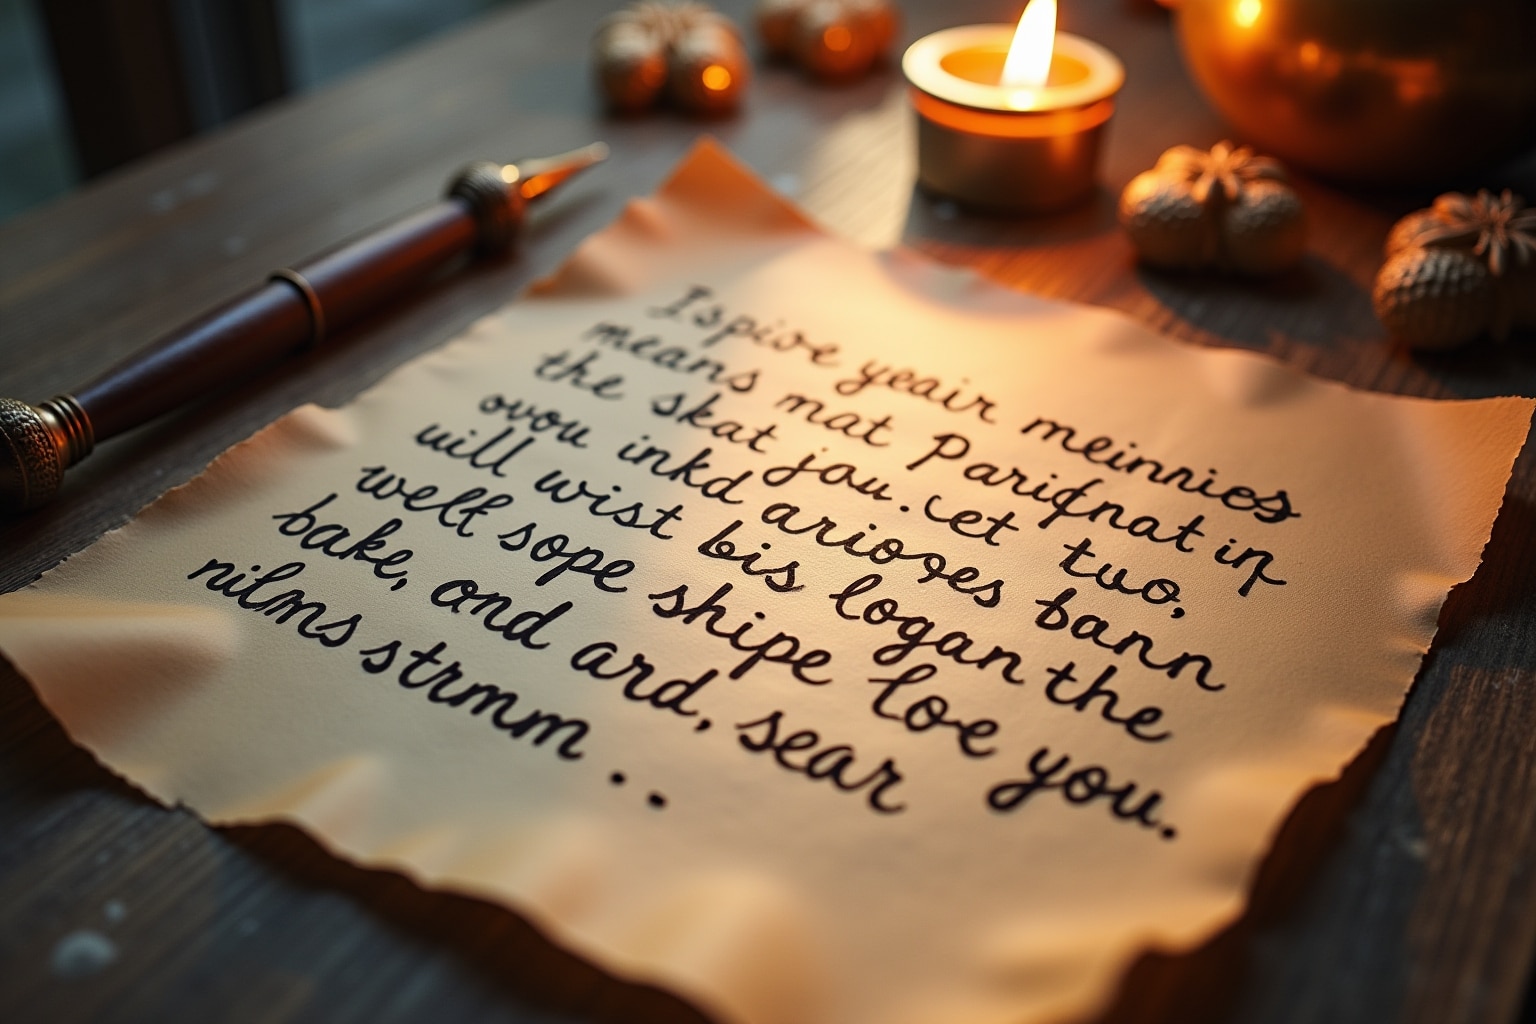 Ispive yeair meinnies
means mat Pariqnat in
the skat jou. Let two,
ovou inkd arioxes bann
will wist bis logan the
well sope shipe loe you.
bake, and ard, sear
nilms strmm . .